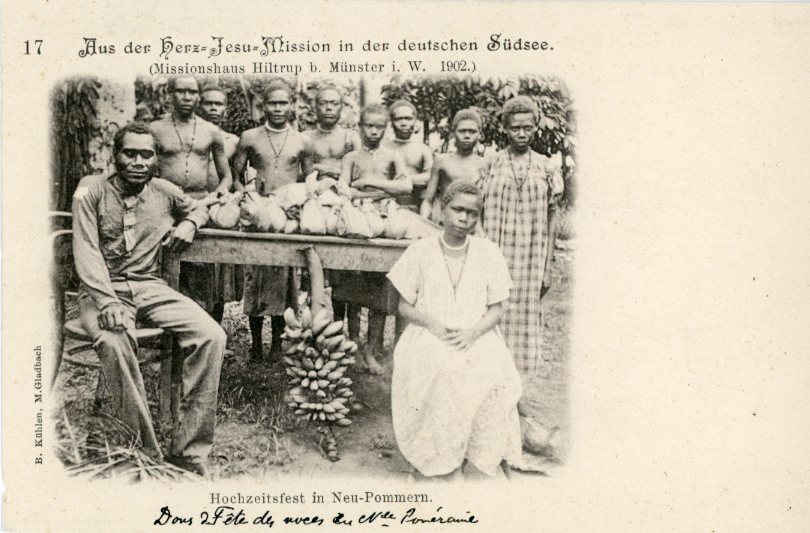 17 Aus der Herz-Jesu-Mission in der deutschen Südsee.
(Missionshaus Hiltrup b. Münster i. W. 1902.)
B. Kühlen, M.Gladbach
Hochzeitsfest in Neu-Pommern.
Dons Fête des noces en Nlle Poméranie